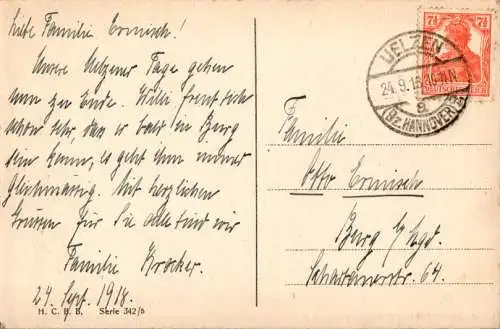 Liebe Familie Ermisch!
Unsere Uelzener Tage gehen
nun zu Ende. Willi freut sich
schon sehr, daß er bald in Burg
sein kann, es geht ihm immer
gleichmäßig. Mit herzlichen
Grüssen für Sie alle sind wir
Familie Krocker.
24. Sept. 1918.
H. C. B. B. Serie 342/6
UELZEN
24.9.18.10-11N
a
(Bz. HANNOVER)
7½ 7½
DEUTSCHES REICH
Familie
Otto Ermisch
Burg b/Mgd.
Schartauerstr. 64.